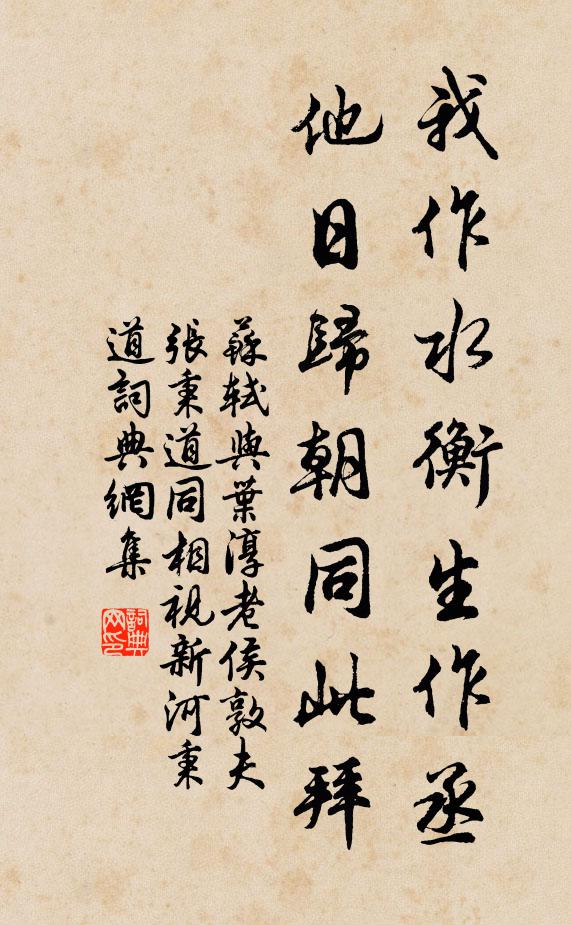 我作水衡生作丞
他日歸朝同此拜
蘇軾與葉淳老侯敦夫
張秉道同相視新河秉
道詞典網集
詞典網印